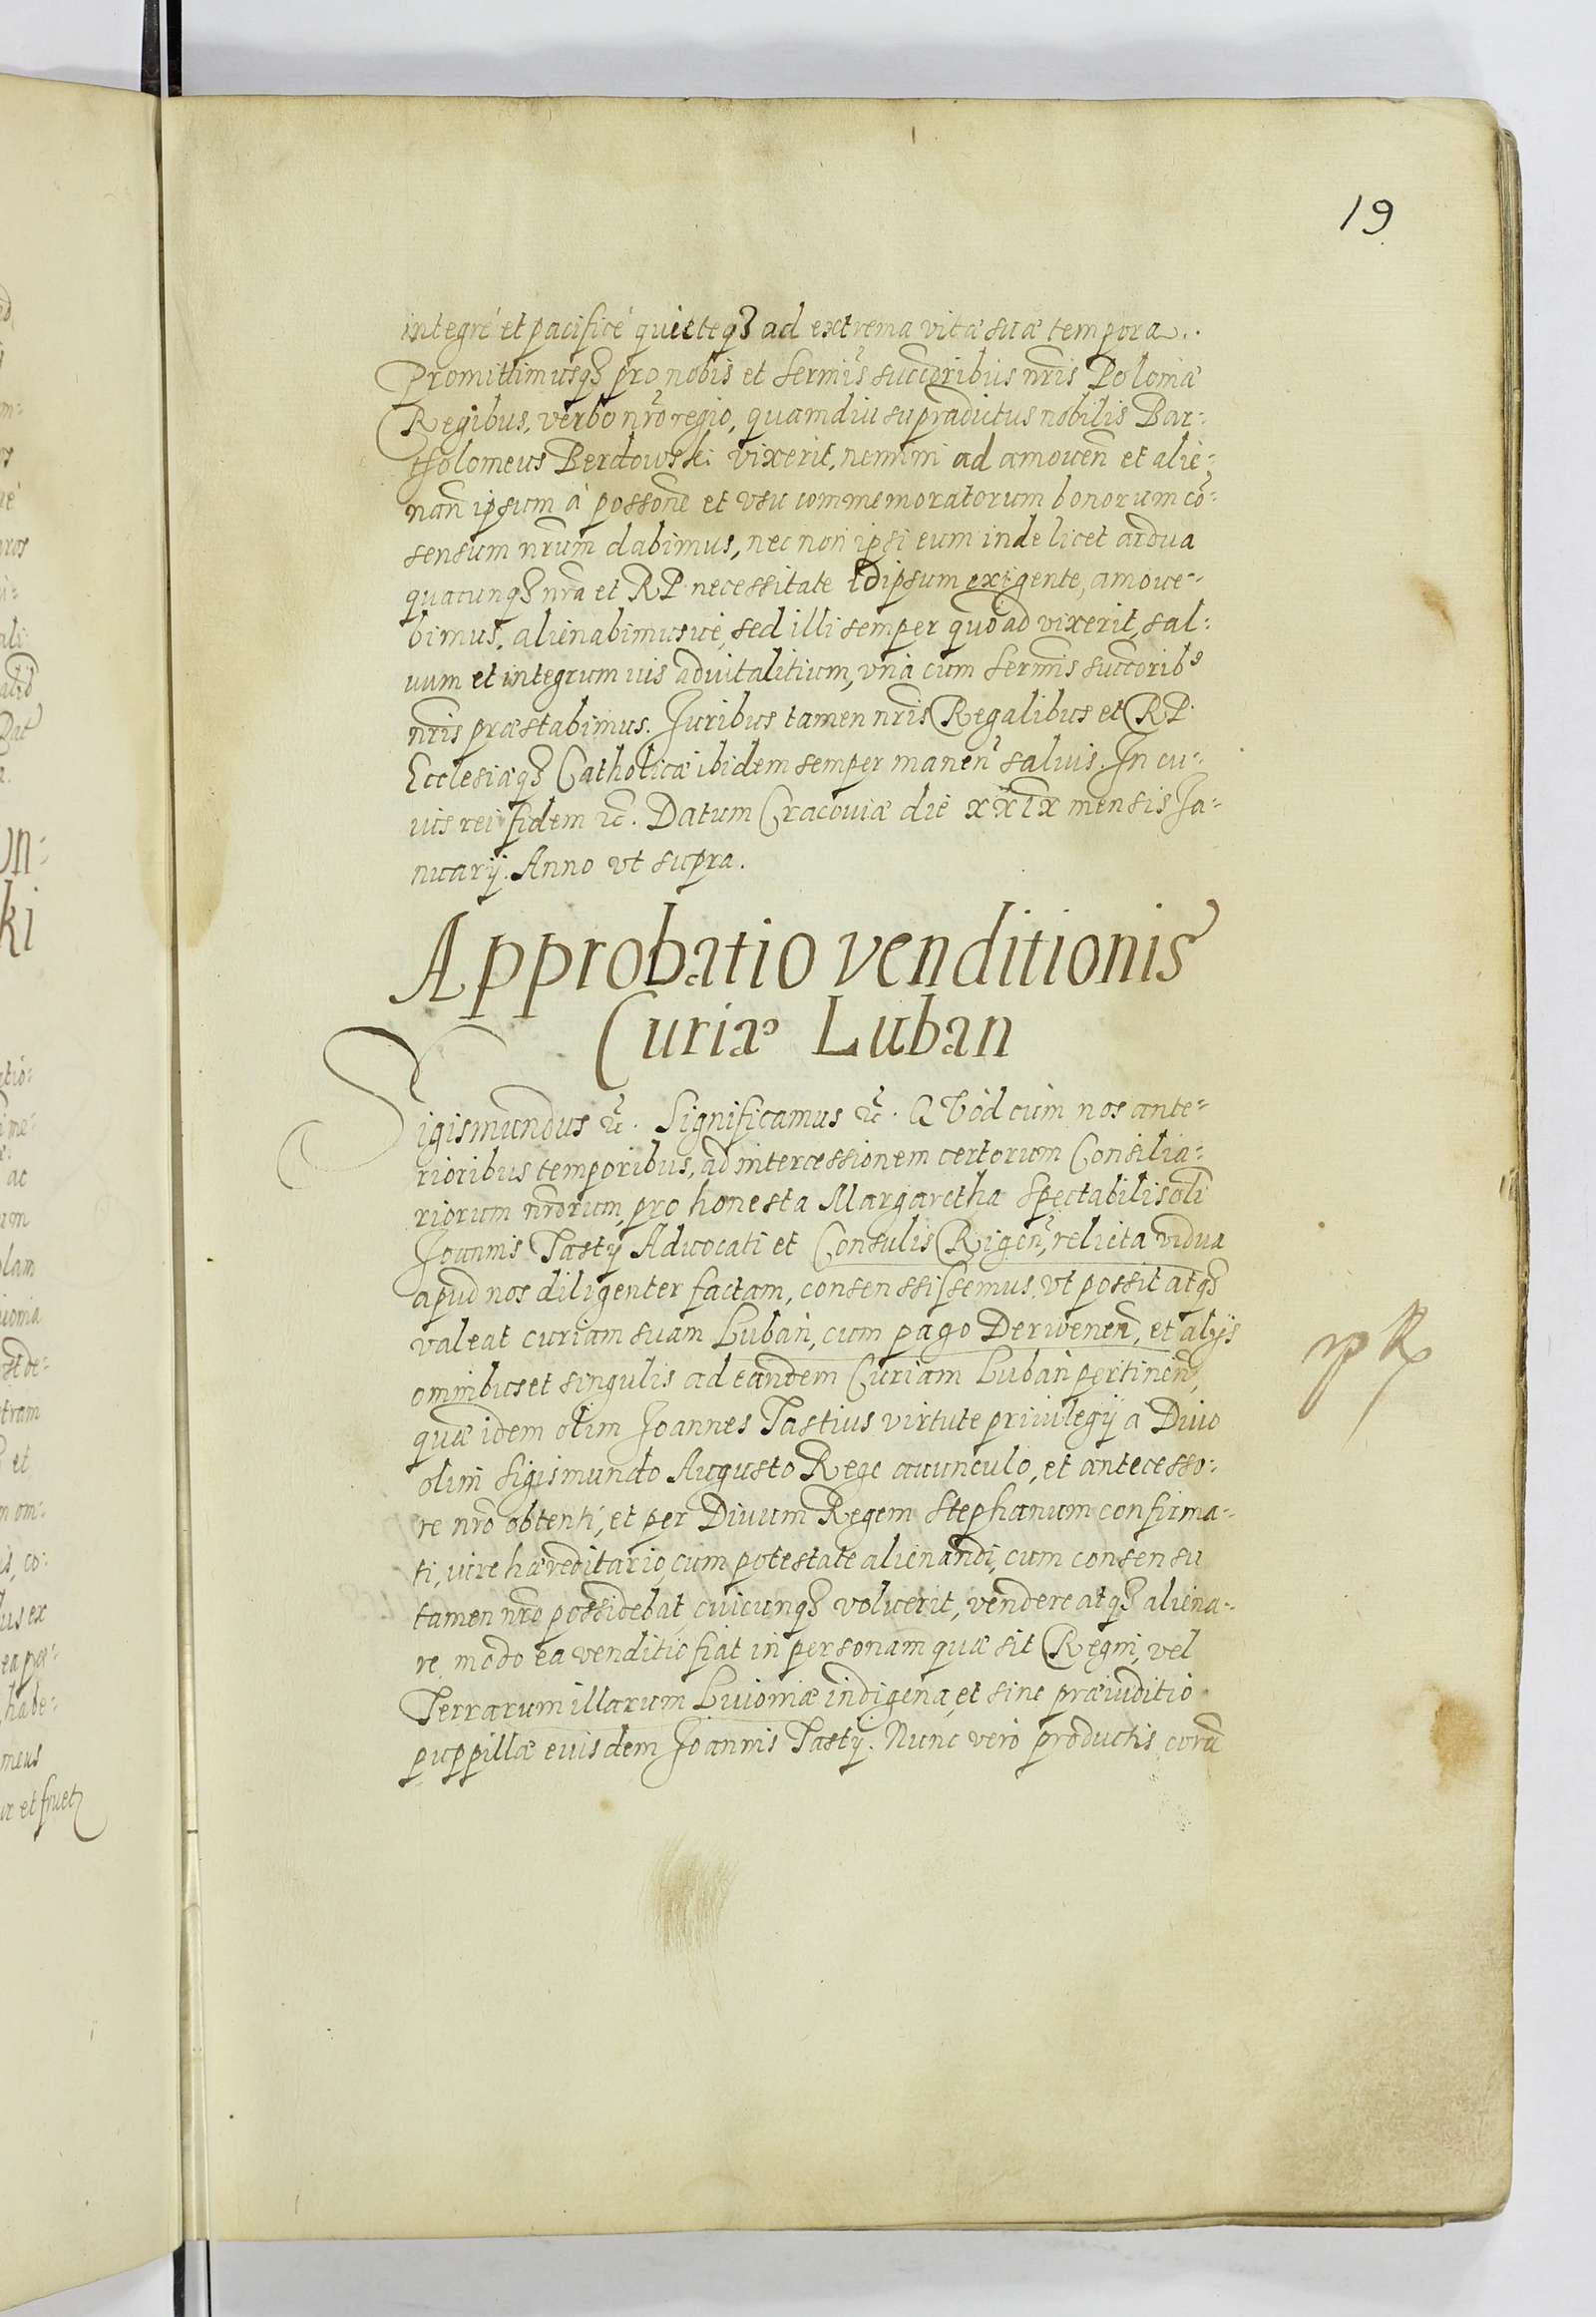 19
integrè et pacificè quieteqꝫ ad extrema vitæ suæ tempora.
Promittimusqꝫ pro nobis et Sermis succoribus nris Poloniæ
Regibus, verbo nro regio, quamdiu supradictus nobilis Bar-
tholomeus Berdowski vixerit, nemini ad amouen et alie-
nan ipsum à possone et vsu commemoratorum bonorum co-
sensum nrum dabimus, nec non ipsi eum inde licet ardua
quacunqꝫ nra et RP necessitate idipsum exigente, amoue-
bimus, alienabimusue, sed illi semper quoad vixerit, sal-
uum et integrum ius aduitalitium, vnà cum Sermis succorib9
nris præstabimus. Juribus tamen nris Regalibus et RP.
Ecclesiæqꝫ Catholicæ ibidem semper manen saluis. In cu-
ius rei fidem ꝛc. Datum Cracouiæ die xxix mensis Ja-
nuarij. Anno vt supra.
Approbatio venditionis
Curiæ Luban
Sigismundus ꝛc. Significamus ꝛc. QVòd cùm nos ante-
rioribus temporibus, ad intercessionem certorum Consilia-
riorum nrorum, pro honesta Margaretha Spectabilis oli
Joannis Tastij Aduocati et Consulis Rigen, relicta vidua
apud nos diligenter factam, consenssissemus, vt possit atqꝫ
valeat curiam suam Luban, cum pago Derwenen, et alijs
omnibus et singulis ad eandem Curiam Luban pertinen,
quæ idem olim Joannes Tastius virtute priuilegij a Diuo
olim Sigismundo Augusto Rege auunculo, et antecesso-
re nro obtenti, et per Diuum Regem Stephanum confirma-
ti, iure hæreditario, cum potestate alienandi, cum consensu
tamen nro possidebat, cuicunqꝫ voluerit, vendere atqꝫ aliena-
re, modo ea venditio fiat in personam quæ sit Regni, vel
Terrarum illarum Liuoniæ indigena, et sine præiuditio
puppillæ eiusdem Joannis Tastij. Nunc verò productis corã